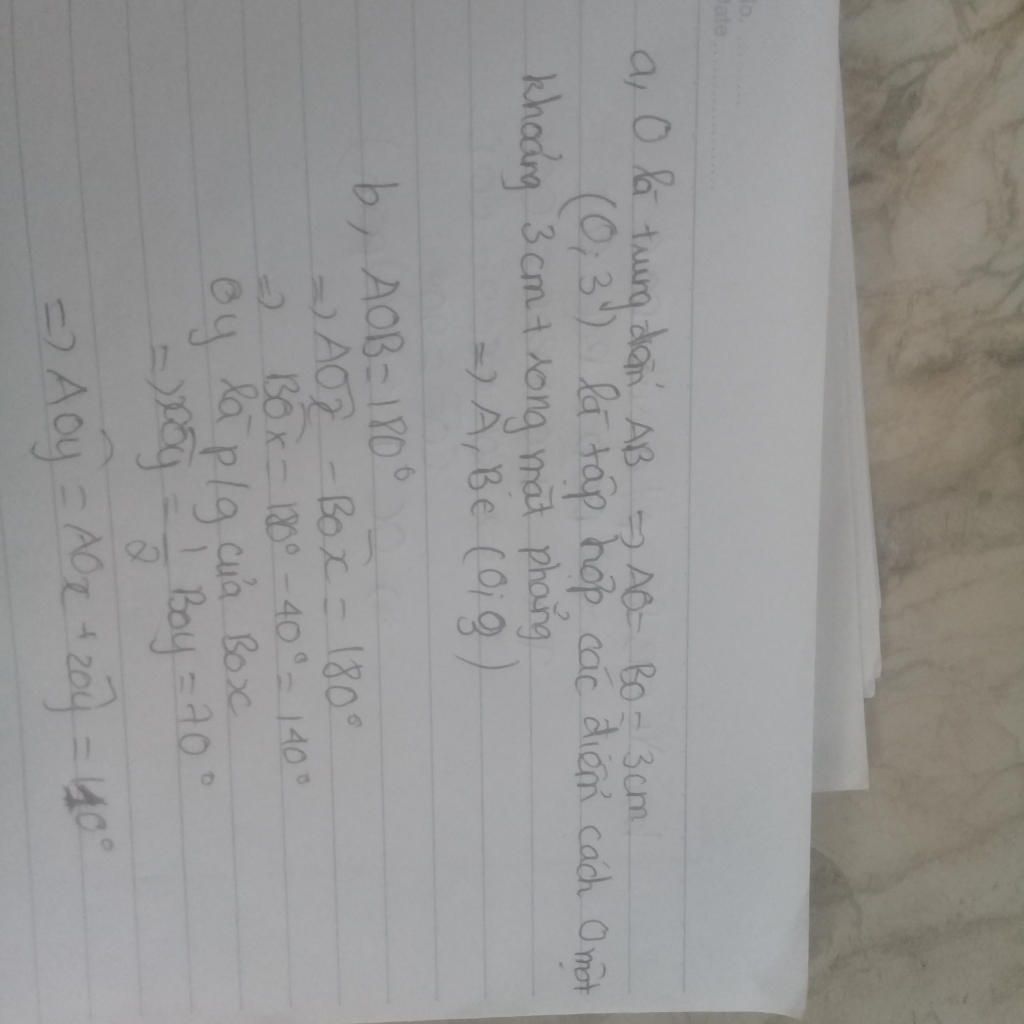 No. ........
Date ..................
a, O là trung điểm AB => AO = BO = 3cm
(O; 3) là tập hợp các điểm cách O một
khoảng 3cm + rong mặt phẳng
=> A, B ∈ (O; 9)
b, AOB = 180°
=> AOx - BOx = 180°
=> BOx = 180° - 40° = 140°
Oy là p/g của BOx
=> xOy = 1/2 BOy = 70°
=> AOy = AOx + xOy = 110°